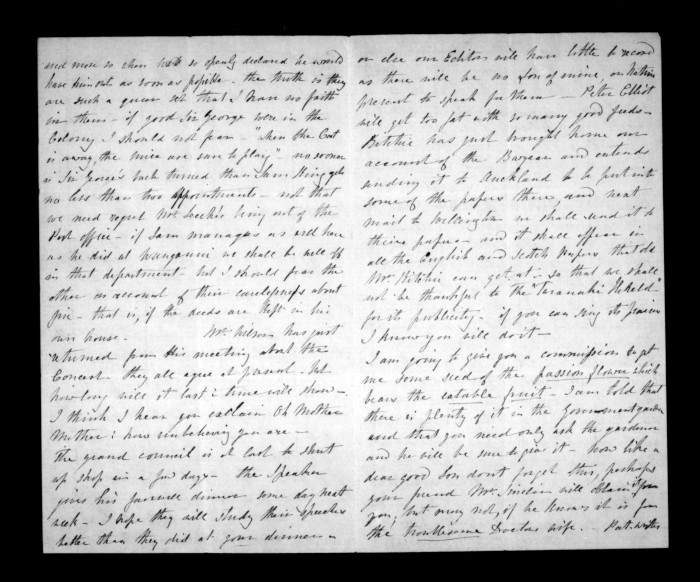 and more so when he so openly declared he would
have him out as soon as possible - the truth is they
are such a queer set that I have no faith
in them - if good Sir George were in the
Colony I should not fear - "when the Cat
is away, the mice are sure to play" - no sooner
is Sir George's back turned than Mr King gets
no less than two appointments - not that
we need regret Mr being out of the
Post office - if Sam manages as well here
as he did at Wanganui we shall be well off
in that department but I should fear the
other on account of their carelessness about
fire - that is, if the deeds are kept in his
own house. Mr Wilson has just
returned from his meeting about the
Concert - they all agree at present - but
how long will it last: time will show -
I think I hear you exclaim Oh Mother
Mother: how unbelieving you are -
The grand council is at last to shut
up shop in a few days - the Speaker
gives his farewell dinner some day next
week - I hope they will study their speeches
better than they did at your dinner -
or else our Editors will have little to record
as there will be no Son of mine, or
present to speak for them - Peter Elliot
will get too fat with so many good feeds -
Ritchie has just brought home our
account of the Bazaar and intends
sending it to Auckland to be put into
some of the papers there, and next
mail to Wellington we shall send it to
their papers - and it shall appear in
all the English and Scotch Papers that old
Mr Ritchie can get at - so that we shall
not be thankful to the "Taranaki Herald"
for its publicity - if you can sing its praises
I know you will do it -
I am going to give you a commission to get
me some seed of the passion flower which
bears the eatable fruit - I am told that
there is plenty of it in the Government garden
and that you need only ask the gardener
and he will be sure to give it - now like a
dear good Son don't forget this, perhaps
your friend Mr will obtain it for
you, but may not, if he knows it is for
the troublesome Doctors wife. -